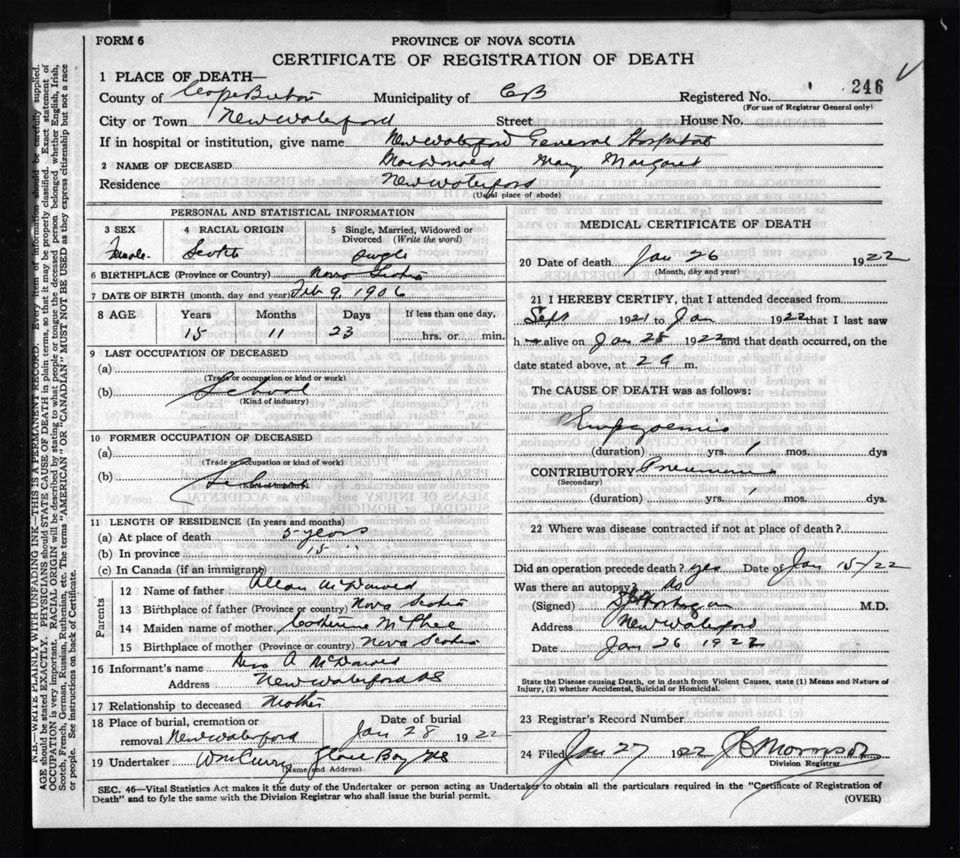 FORM 6
PROVINCE OF NOVA SCOTIA
CERTIFICATE OF REGISTRATION OF DEATH
1 PLACE OF DEATH—
246
County of Cape Breton Municipality of CB Registered No.
(For use of Registrar General only)
City or Town New Waterford Street House No.
If in hospital or institution, give name New Waterford General Hospital
2 NAME OF DECEASED MacDonald Mary Margaret
Residence New Waterford
(Usual place of abode)
PERSONAL AND STATISTICAL INFORMATION
3 SEX 4 RACIAL ORIGIN 5 Single, Married, Widowed or Divorced (Write the word)
Female Scotch Single
6 BIRTHPLACE (Province or Country) Nova Scotia
7 DATE OF BIRTH (month, day and year) Feb 9, 1906
8 AGE Years Months Days If less than one day,
15 11 23 hrs. or min.
9 LAST OCCUPATION OF DECEASED
(a)
(Trade or occupation or kind or work)
(b) School
(Kind of industry)
10 FORMER OCCUPATION OF DECEASED
(a)
(Trade or occupation or kind or work)
(b)
11 LENGTH OF RESIDENCE (In years and months)
(a) At place of death 5 years
(b) In province 15 "
(c) In Canada (if an immigrant)
Parents
12 Name of father Allan McDonald
13 Birthplace of father (Province or country) Nova Scotia
14 Maiden name of mother Catherine McPhee
15 Birthplace of mother (Province or country) Nova Scotia
16 Informant's name Mrs A McDonald
Address New Waterford NS
17 Relationship to deceased Mother
18 Place of burial, cremation or removal New Waterford
Date of burial
Jan 28 1922
19 Undertaker Wm Curry Glace Bay NS
(Name and Address)
MEDICAL CERTIFICATE OF DEATH
20 Date of death Jan 26 1922
(Month, day and year)
21 I HEREBY CERTIFY, that I attended deceased from
Sept 1921 to Jan 1922 that I last saw
h alive on Jan 25 1922 and that death occurred, on the
date stated above, at 2 a m.
The CAUSE OF DEATH was as follows:
Empyema
(duration) yrs. 1 mos. dys.
CONTRIBUTORY Pneumonia
(Secondary)
(duration) yrs. 1 mos. dys
22 Where was disease contracted if not at place of death?
Did an operation precede death? yes Date of Jan 15/22
Was there an autopsy? No
(Signed) M.D.
Address New Waterford
Date Jan 26 1922
State the Disease causing Death, or in death from Violent Causes, state (1) Means and Nature of
Injury, (2) whether Accidental, Suicidal or Homicidal.
23 Registrar's Record Number
24 Filed Jan 27 1922 Morrison
Division Registrar
SEC. 46—Vital Statistics Act makes it the duty of the Undertaker or person acting as Undertaker to obtain all the particulars required in the "Certificate of Registration of
Death" and to fyle the same with the Division Registrar who shall issue the burial permit.
(OVER)
N.B.—WRITE PLAINLY WITH UNFADING INK—THIS IS A PERMANENT RECORD. Every item of information should be carefully supplied.
AGE should be stated EXACTLY. PHYSICIANS should STATE CAUSE OF DEATH in plain terms, so that it may be properly classified. Exact statement of
OCCUPATION is very important. RACIAL ORIGIN will be described by stating to what people or tongue the deceased person belonged whether English, Irish,
Scotch, French, German, Russian, Ruthenian, etc. The terms "AMERICAN" OR "CANADIAN" MUST NOT BE USED as they express citizenship but not a race
or people. See instructions on back of Certificate.